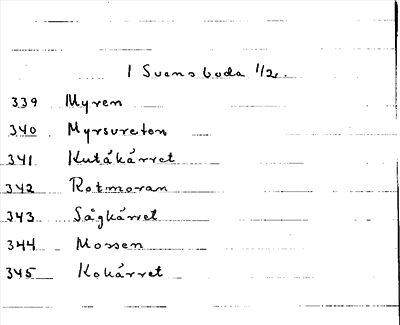 1 Svensboda 1/2.
339 Myren
340 Myrsvreten
341 Kutåkärret
342 Rotmoran
343 Sågkärret
344 Mossen
345 Kokärret